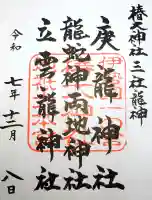 椿大神社 三社龍神
庚龍神社
龍蛇神雨地神
立雲龍神社
令和
七年十二月
八日